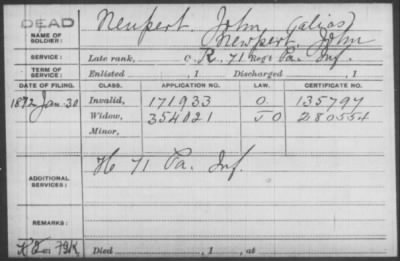 DEAD
NAME OF SOLDIER: Neupert, John (alias)
Newpert, John
SERVICE: Late rank, Co. K, 71 Reg't Pa. Inf.
TERM OF SERVICE: Enlisted , 1 Discharged , 1
DATE OF FILING. CLASS. APPLICATION NO. LAW. CERTIFICATE NO.
1872 Jan. 30 Invalid, 171933 O. 135797
Widow, 354021 J O 280554
Minor,
ADDITIONAL SERVICES: H 71 Pa. Inf.
REMARKS:
Died , 1 , at